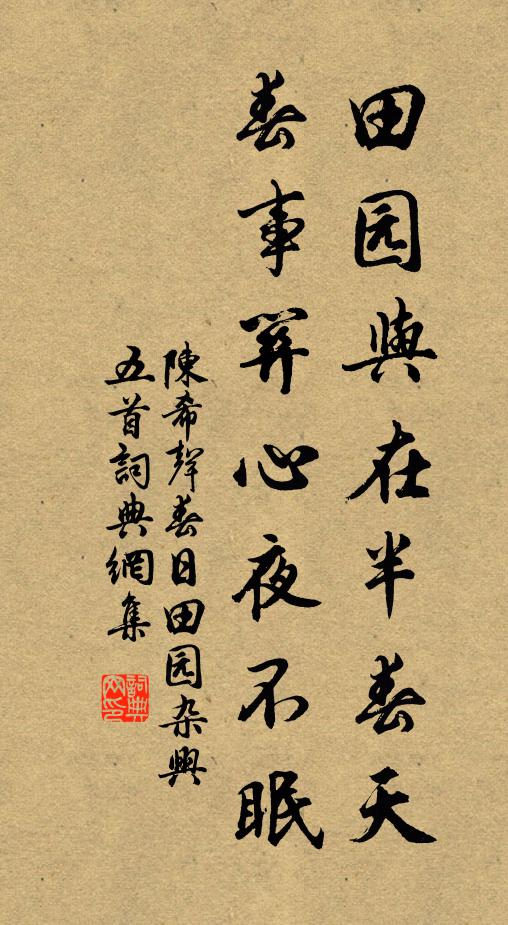 田园興在半春天
春事關心夜不眠
陳希聲春日田园杂興
五首詞典網集
詞典
网印